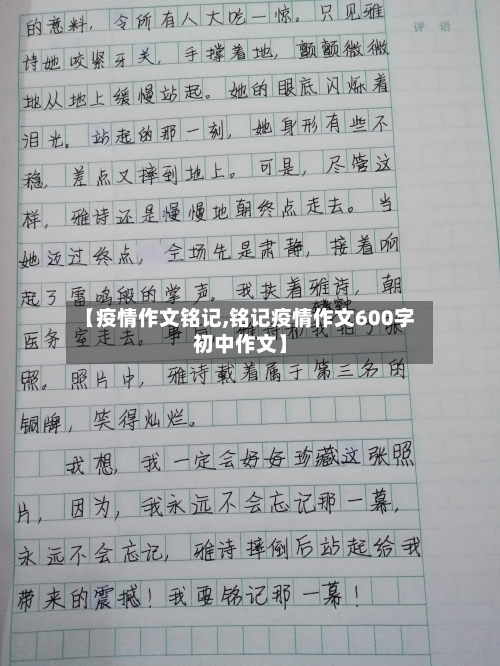 评 语
的意料，令所有人大吃一惊。只见雅
诗她咬紧牙关，手撑着地，颤颤微微
地从地上缓慢站起。她的眼底闪烁着
泪光。站起的那一刻，她身形有些不
稳，差点又摔到地上。可是，尽管这
样，雅诗还是慢慢地朝终点走去。当
她迈过终点，全场先是肃静，接着响
起了雷鸣般的掌声。我扶着雅诗，朝
医务室走去。
【疫情作文铭记,铭记疫情作文600字
初中作文】
照。照片中，雅诗戴着属于第三名的
铜牌，笑得灿烂。
我想，我一定会好好珍藏这张照
片，因为，我永远不会忘记那一幕，
永远不会忘记，雅诗摔倒后站起给我
带来的震撼！我要铭记那一幕！